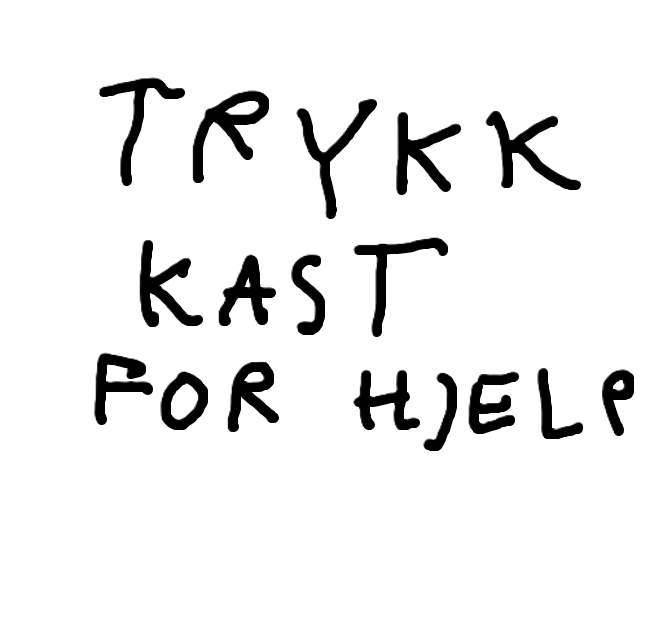 TRYKK
KAST
FOR HJELP